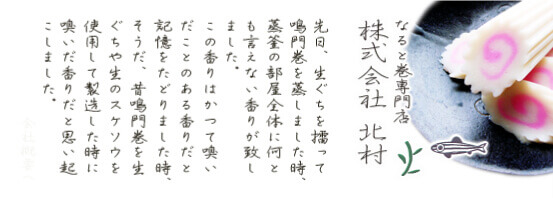 なると巻専門店
株式会社 北村
先日、生ぐちを擂って
鳴門巻を蒸しました時、
蒸釜の部屋全体に何と
も言えない香りが致し
ました。
この香りはかつて嗅い
だことのある香りだと
記憶をたどりました時、
そうだ、昔鳴門巻を生
ぐちや生のスケソウを
使用して製造した時に
嗅いだ香りだと思い起
こしました。